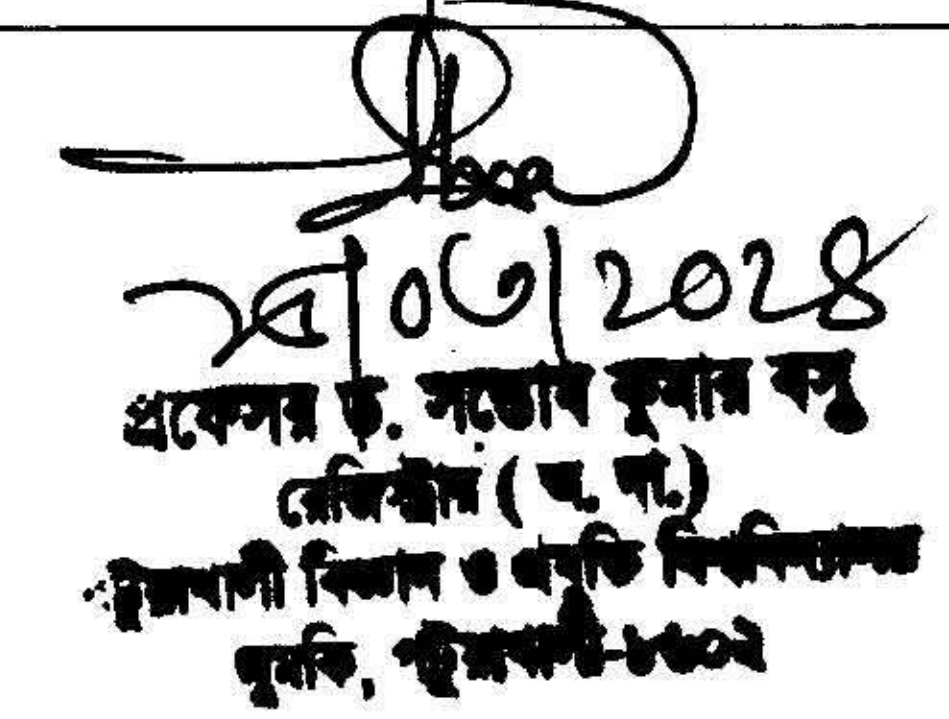 ২৫|০৩|২০২৪
প্রফেসর ড. সন্তোষ কুমার বসু
রেজিস্ট্রার (অ. দা.)
পটুয়াখালী বিজ্ঞান ও প্রযুক্তি বিশ্ববিদ্যালয়
দুমকি, পটুয়াখালী-৮৬০২